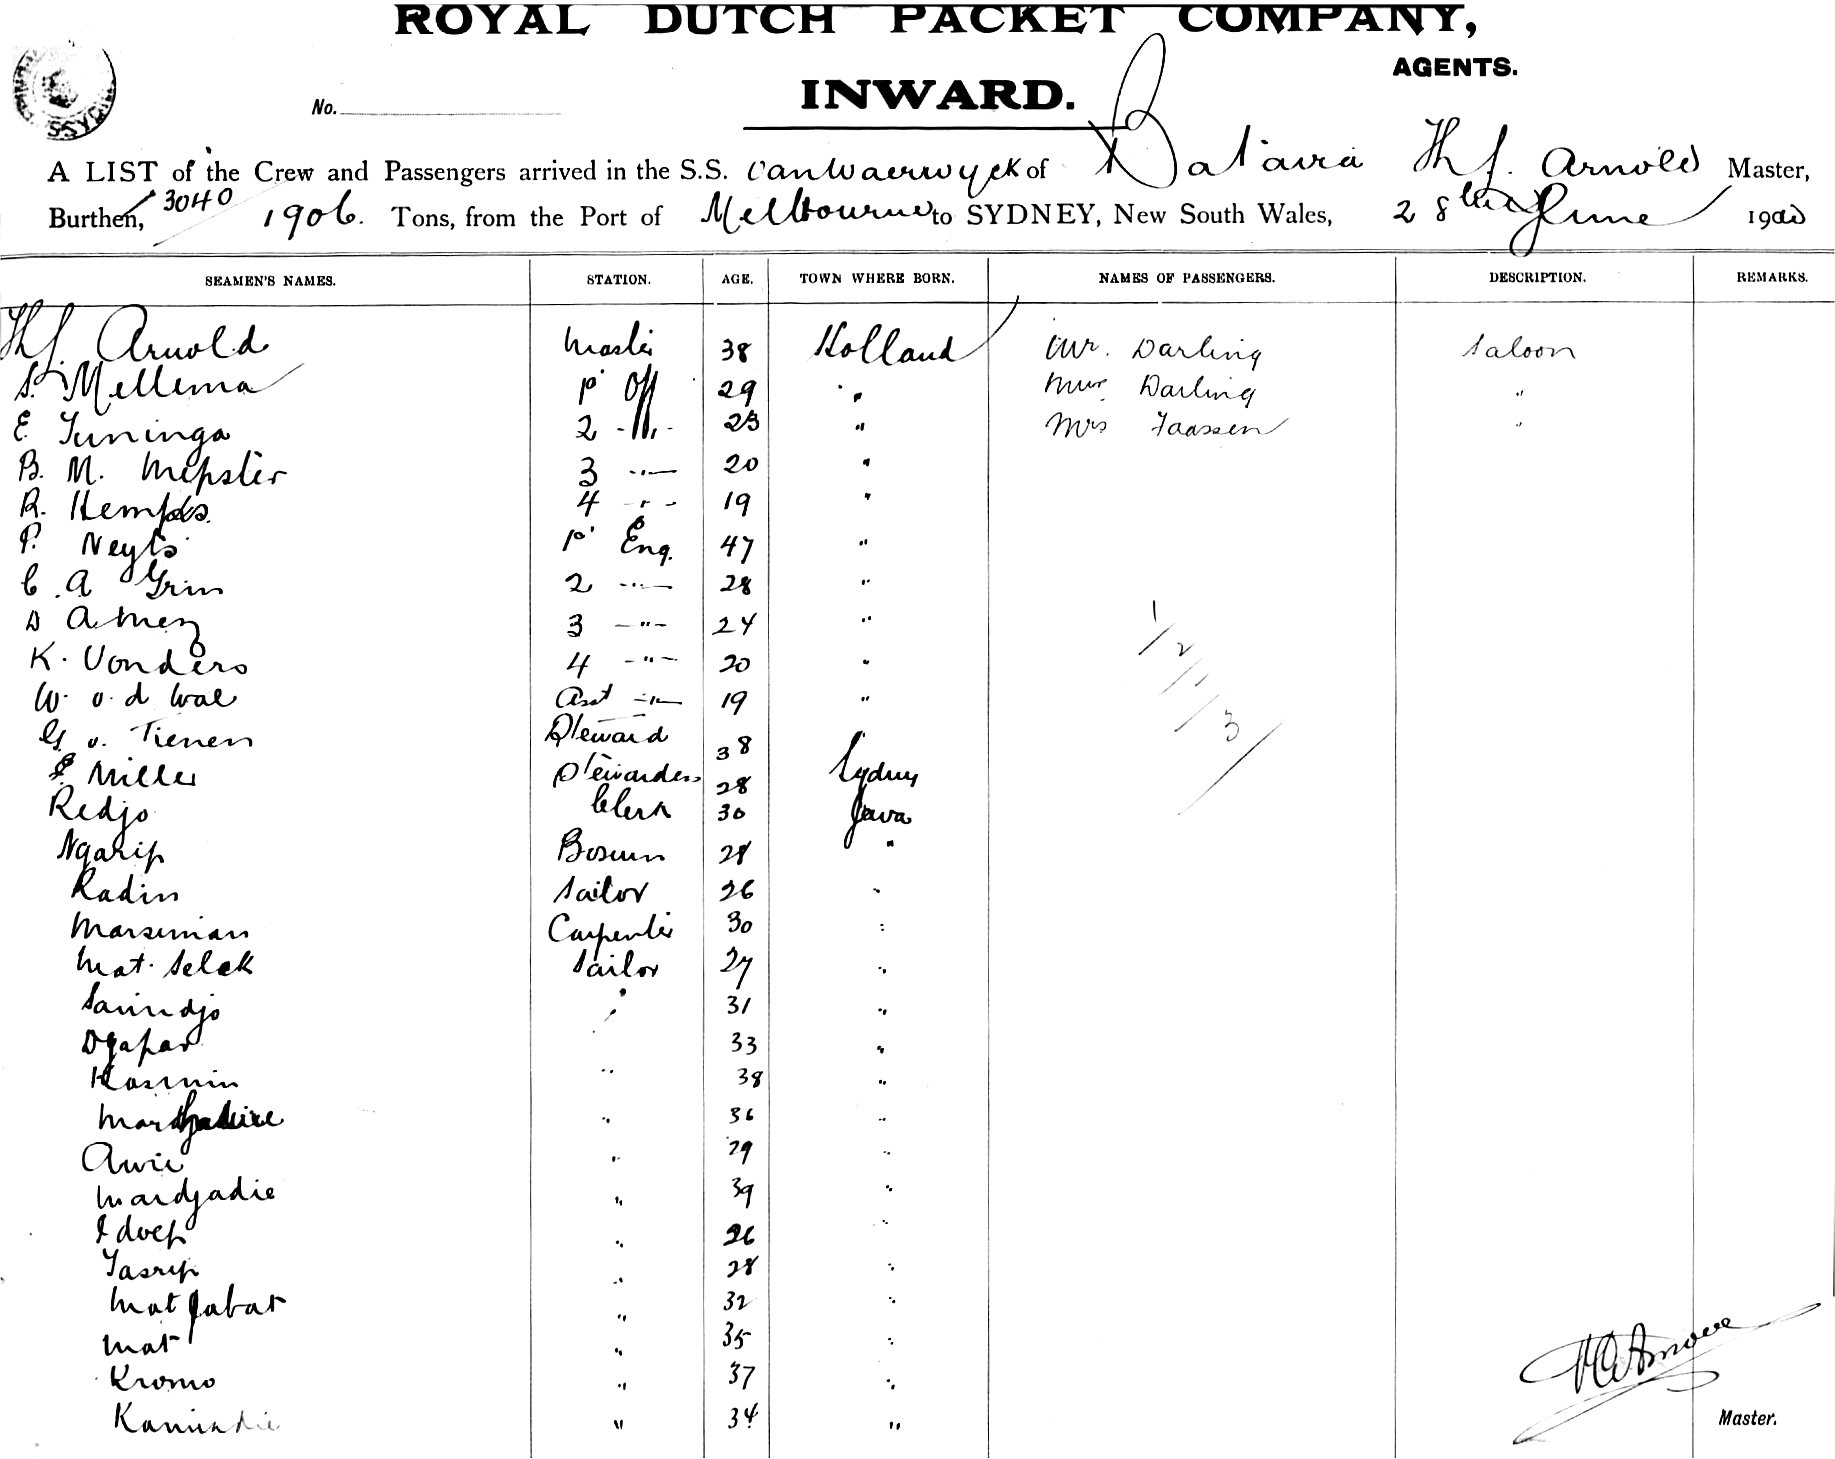 ROYAL DUTCH PACKET COMPANY,
AGENTS.
INWARD.
No.
A LIST of the Crew and Passengers arrived in the S.S. van Waerwyck of Batavia Th J. Arnold Master,
Burthen, 3040 1906. Tons, from the Port of Melbourne to SYDNEY, New South Wales, 28th June 190
SEAMEN'S NAMES. STATION. AGE. TOWN WHERE BORN. NAMES OF PASSENGERS. DESCRIPTION. REMARKS.
Th J. Arnold Master 38 Holland Mr. Darling Saloon
S. Mellema 1e Off 29 " Darling "
E. Tuninga 2 -"- 23 " Mrs Faassen "
B. M. 3 -"- 20 "
R. 4 - " - 19 "
P. Neyts 1e Eng. 47 "
C. A Grin 2 -"- 28 "
D 3 -"- 24 "
K. Vonders 4 -"- 20 "
W. v. d Wal Asst -"- 19 "
G. v. Tienen Steward 38
Miller Stewardess 28 Sydney
Redjo Clerk 30 Java
Ngarip Bosun 28 "
Radin Sailor 26 "
Marsiman Carpenter 30 "
Mat. Selek Sailor 27 "
" 31 "
Djapar 33 "
Kasmin " 38 "
" 36 "
Awie " 29 "
Mardjadie " 39 "
Idoep " 26 "
Tasrip " 28 "
Mat Jabar " 32 "
Mat " 35 "
Kromo " 37 "
" 34 "
1/2/1/3/
Master.